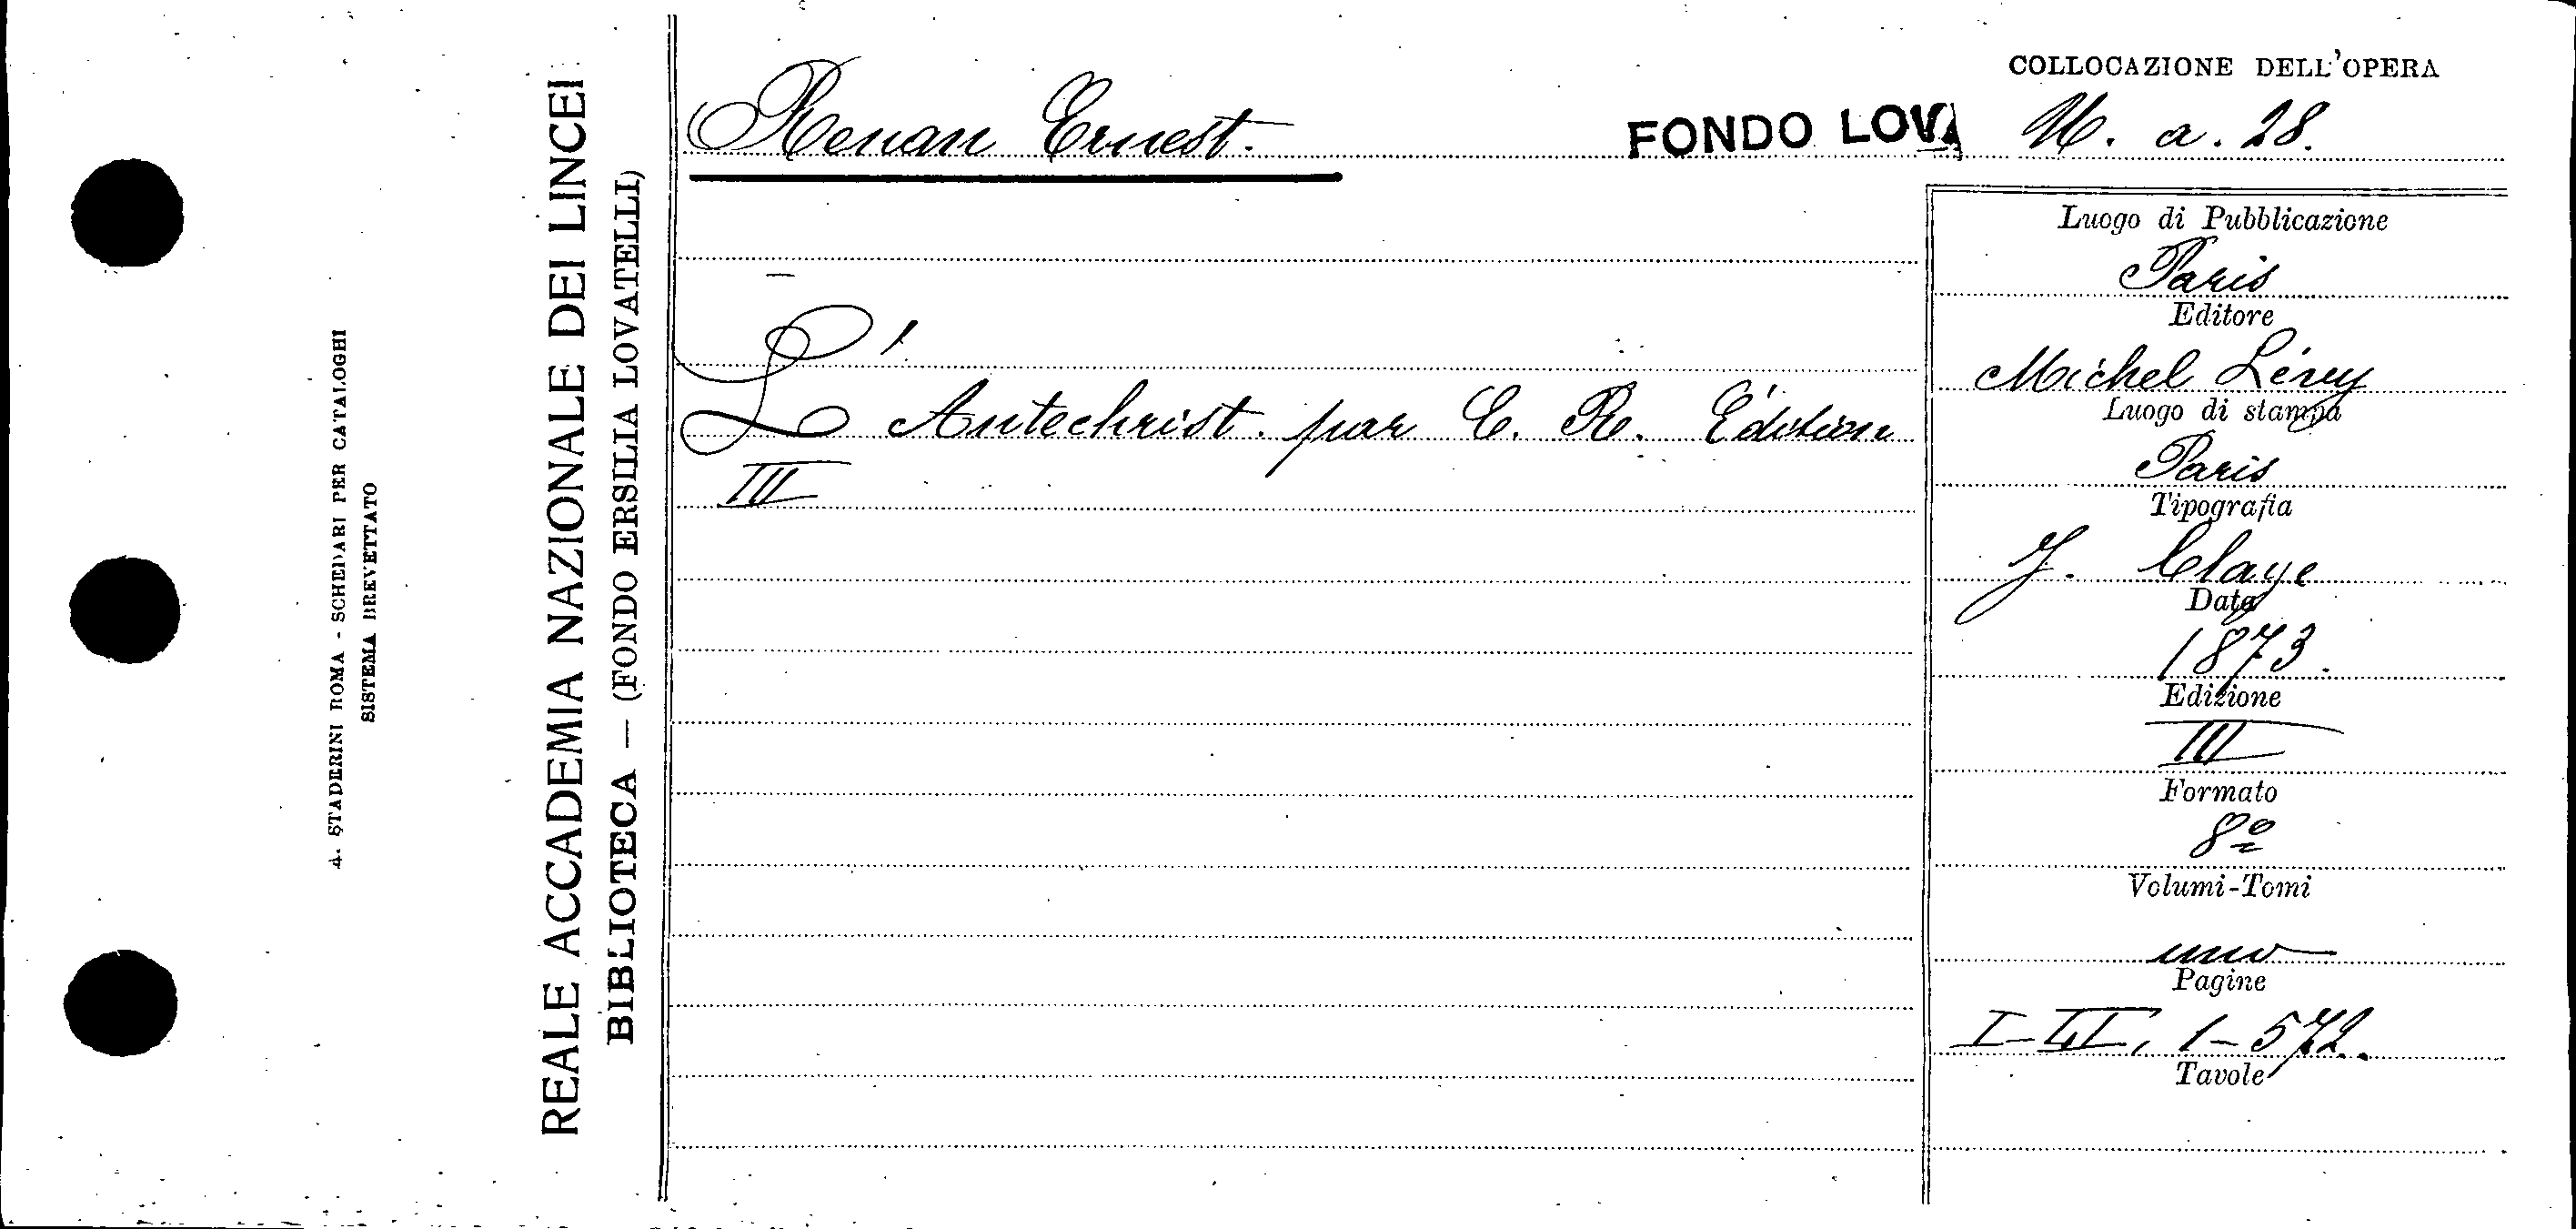 4. STADERINI ROMA - SCHEDARI PER CATALOGHI
SISTEMA BREVETTATO
REALE ACCADEMIA NAZIONALE DEI LINCEI
BIBLIOTECA — (FONDO ERSILIA LOVATELLI)
Renan Ernest.
FONDO LOV.
L'Antechrist. par E. R. Édition
III
COLLOCAZIONE DELL'OPERA
a. 28.
Luogo di Pubblicazione
Paris
Editore
Michel Lévy
Luogo di stampa
Paris
Tipografia
J. Claye
Data
1873.
Edizione
III
Formato
8º
Volumi-Tomi
uno
Pagine
I-LI, 1-572.
Tavole